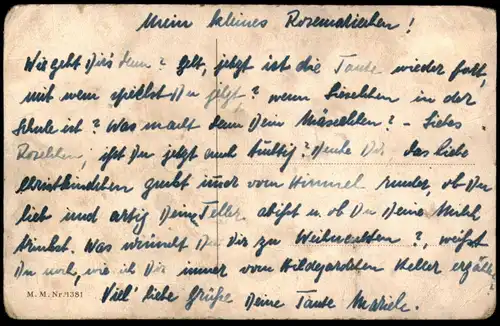 Mein kleines Rosemariechen!
Wie geht Dir's denn? Gelt, jetzt ist die Tante wieder fort,
mit wem spielst Du jetzt? wenn Lieschen in der
Schule ist? Was macht denn Dein Mäschen? - Liebes
Roselchen, ißt Du jetzt auch tüchtig? Denke Dir, das liebe
Christkindchen guckt immer vom Himmel runder, ob Du
lieb und artig Deine Teller abißt u. ob Du Deine Milch
trinkst. Was wünscht Du Dir zu Weihnachten?, weißt
Du noch, wie ich Dir immer vom Hildegardchen Keller erzählt
Viel' liebe Grüße Deine Tante Mariele.
M. M. Nr. 1381